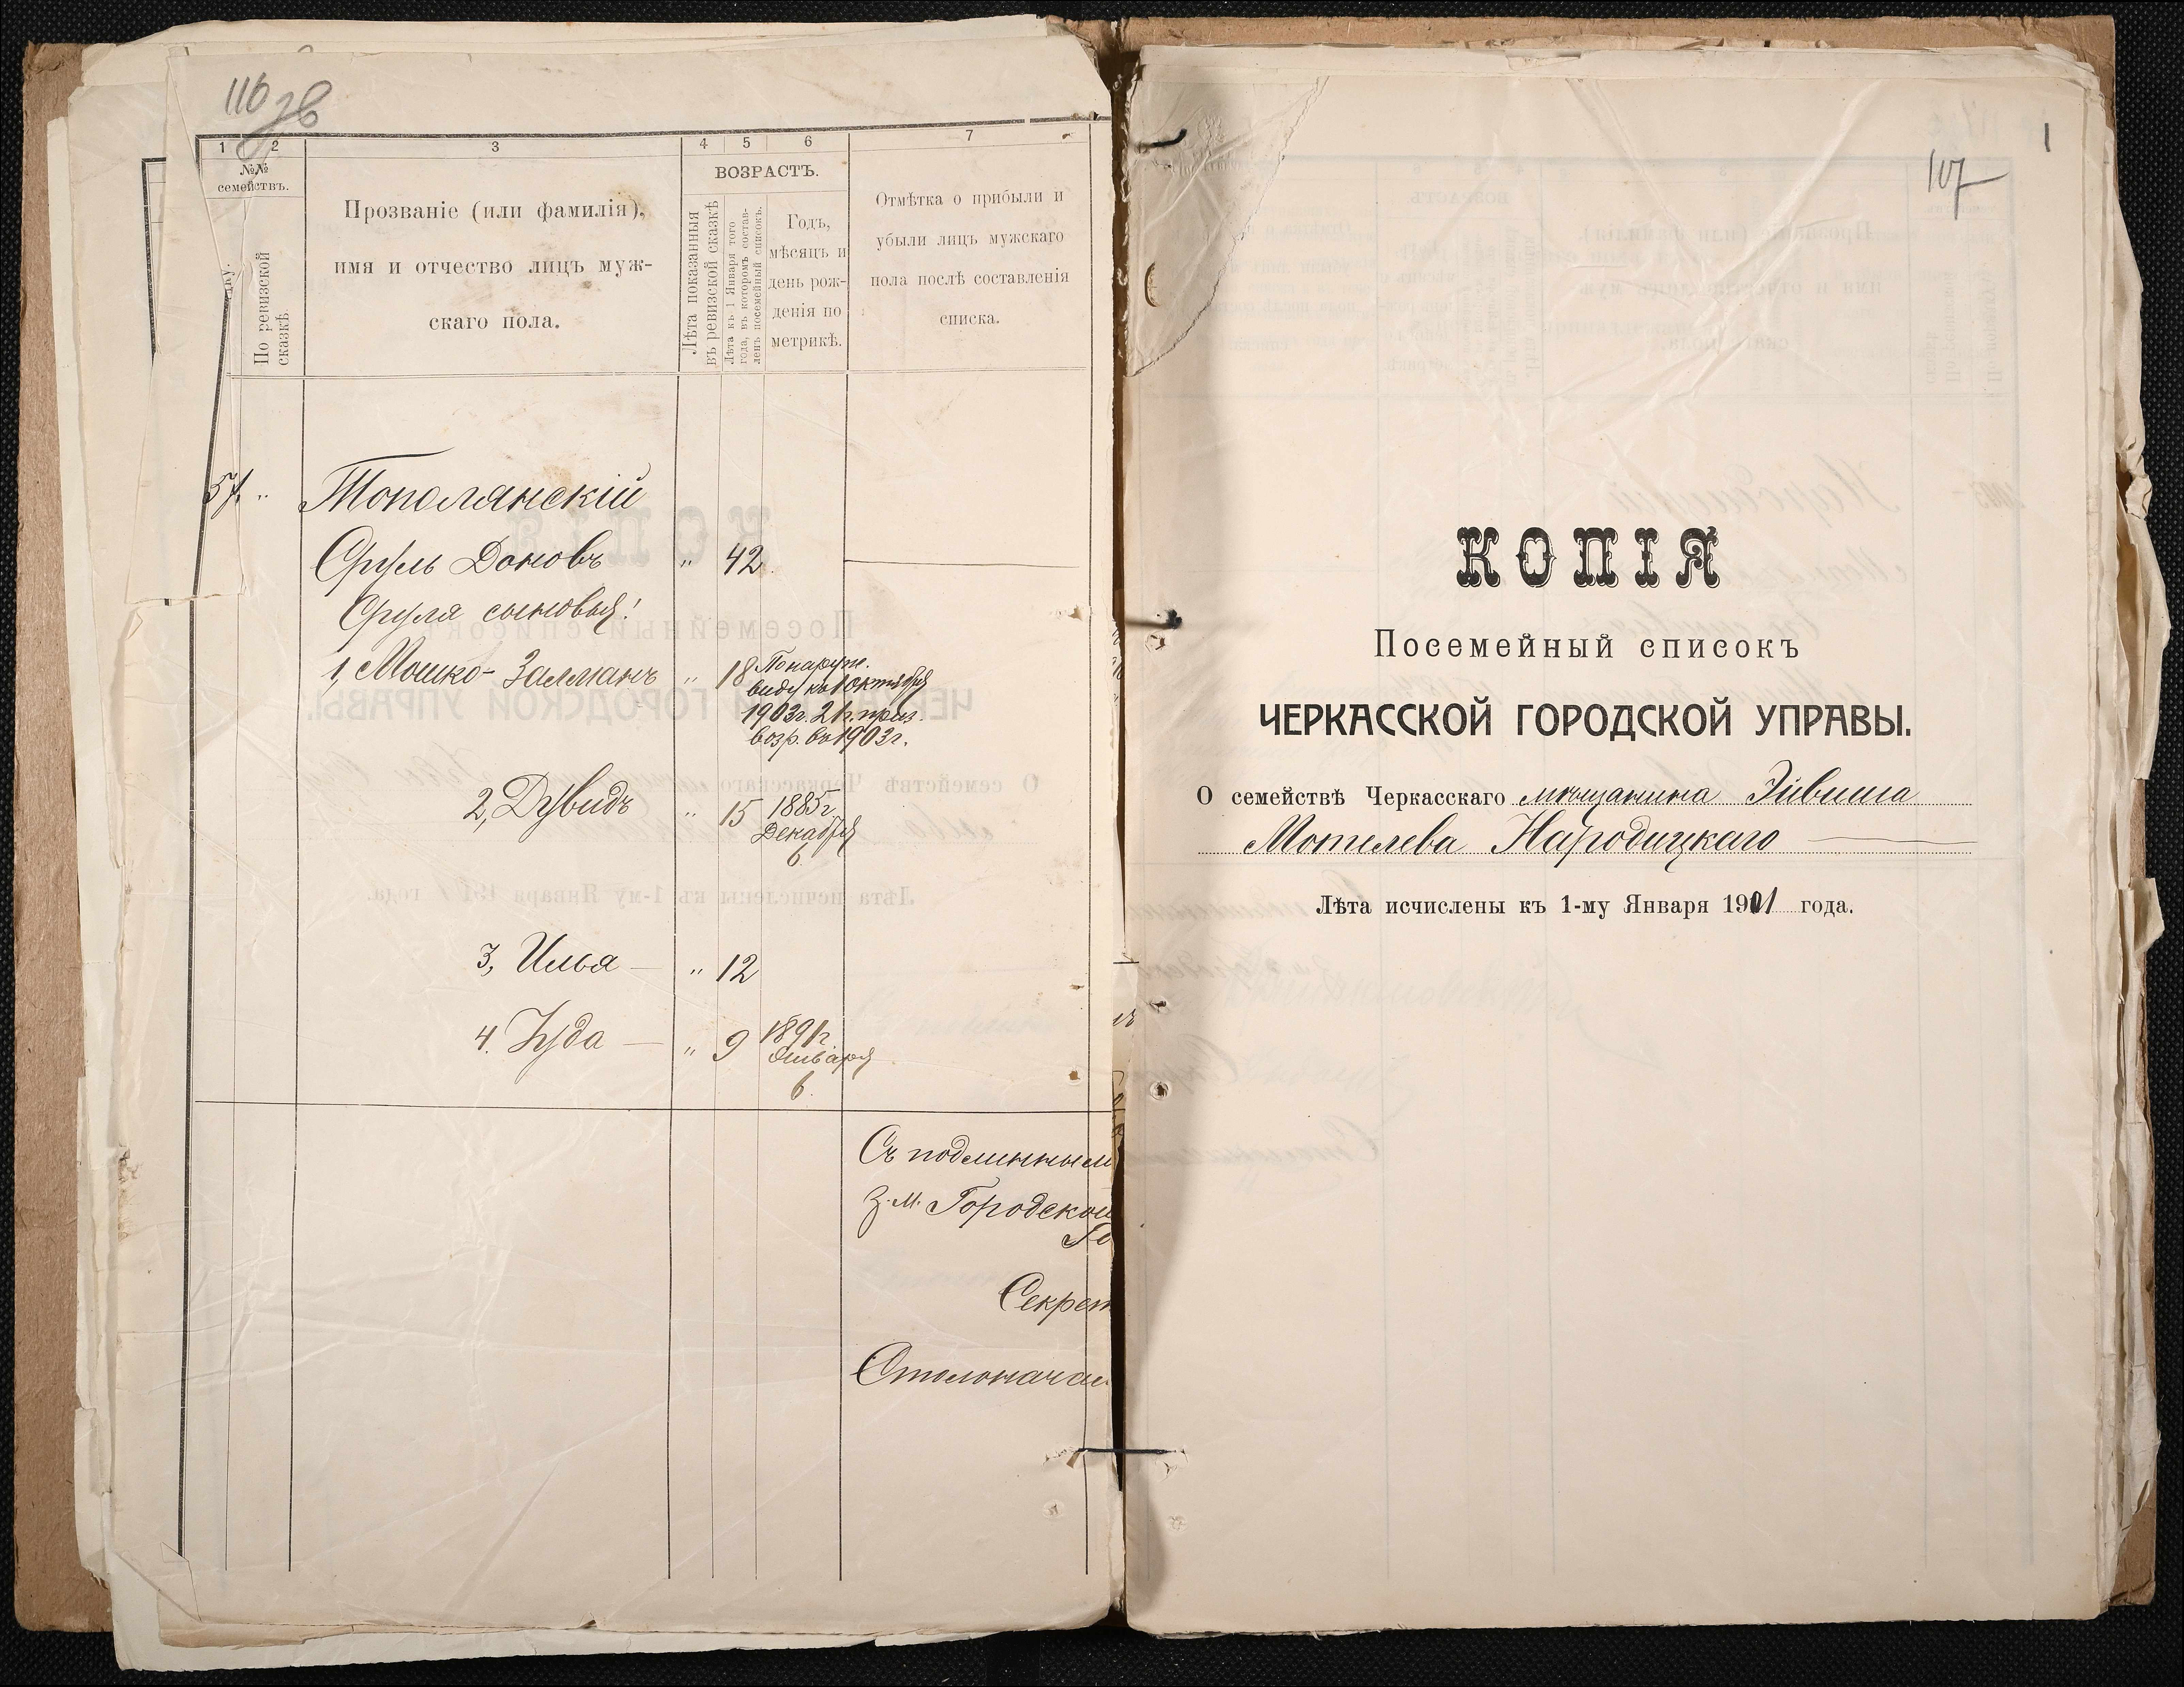 116 зв
1 2 3 4 5 6 7
№№ семействъ.
По ревизской сказкѣ.
Прозваніе (или фамилія),
имя и отчество лицъ муж-
скаго пола.
ВОЗРАСТЪ.
Лѣта показанныя въ ревизской сказкѣ
Лѣта къ 1 Января того года, въ которомъ состав- ленъ посемейный списокъ.
Годъ,
мѣсяцъ и
день рож-
денія по
метрикѣ.
Отмѣтка о прибыли и
убыли лицъ мужскаго
пола послѣ составленія
списка.
Тополянскій
Сруль Доновъ " 42
Сруля сыновья:
1, Мошко-Залманъ " 18 По наруж.
виду къ 1 октября
1903г. 21г. приз.
возр. въ 1903г.
2, Дувидъ " 15 1885г
Декабря
6
3, Илья — " 12
4. Іуда — " 9 1891г
Января
6.
Съ подлинным
З. М. Городском
Го
Секрет
Столоначал
1
107
КОПІЯ
Посемейный списокъ
ЧЕРКАССКОЙ ГОРОДСКОЙ УПРАВЫ.
О семействѣ Черкасскаго мѣщанина Эйвиша
Мотелева Народицкаго
Лѣта исчислены къ 1-му Января 1901 года.